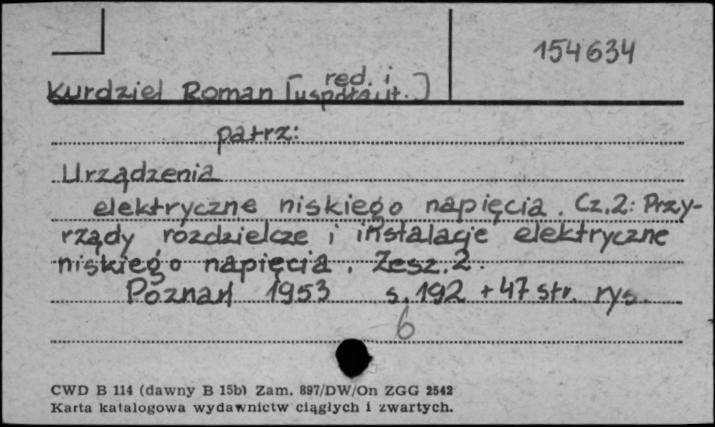 154634
Kurdziel Roman [red. i współaut.]
patrz:
Urządzenia
elektryczne niskiego napięcia. Cz.2: Przy-
rządy rozdzielcze i instalacje elektryczne
niskiego napięcia. Zesz. 2.
Poznań 1953 s. 192 + 47 str. rys.
6
CWD B 114 (dawny B 15b) Zam. 897/DW/On ZGG 2542
Karta katalogowa wydawnictw ciągłych i zwartych.